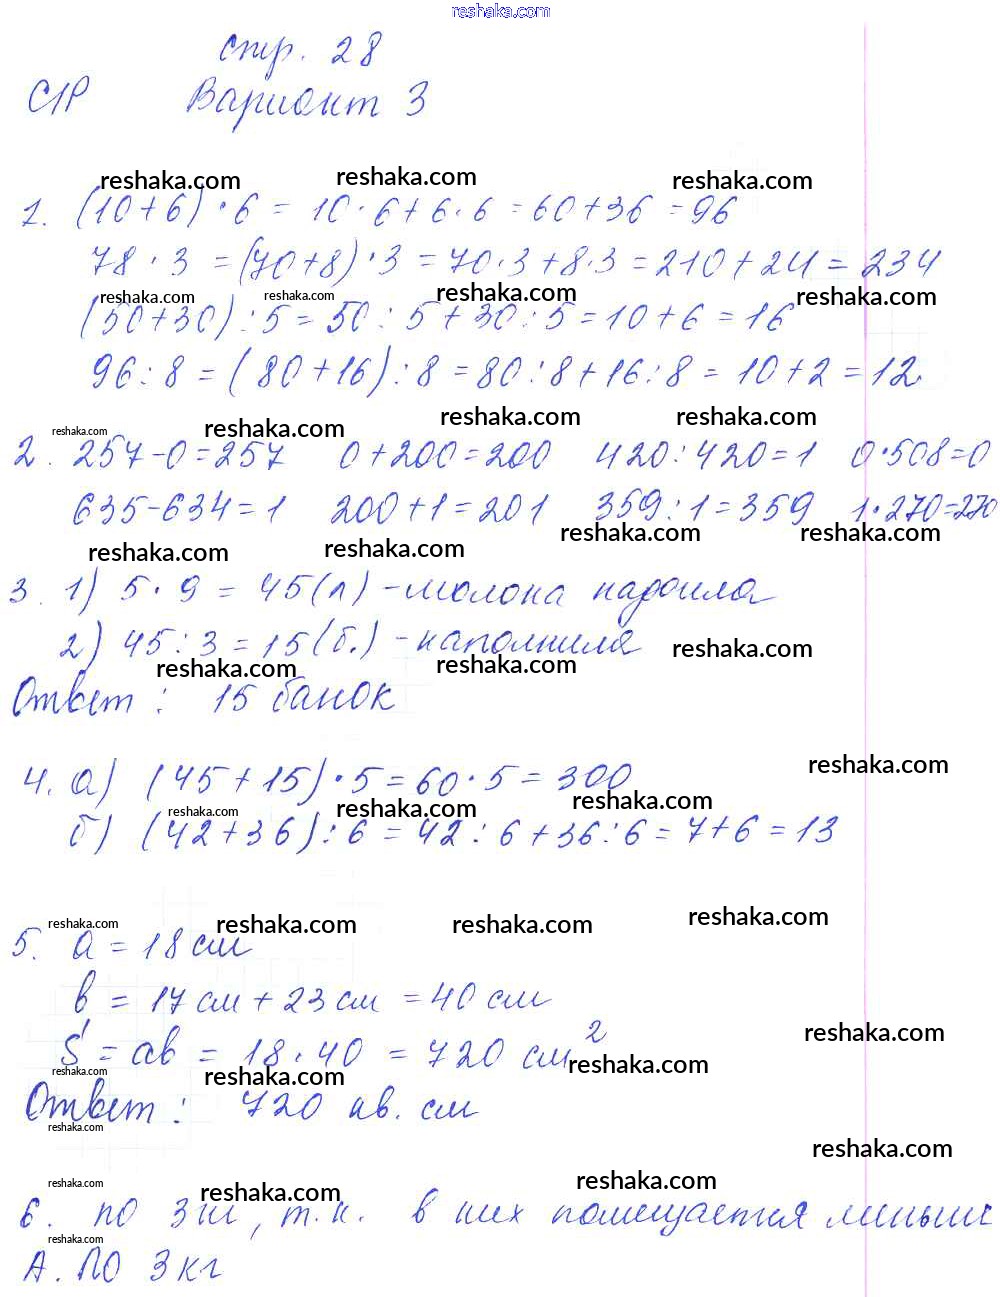 reshaka.com
стр. 28
С1Р Вариант 3
reshaka.com reshaka.com reshaka.com
1. (10+6)·6 = 10·6+6·6=60+36=96
78·3=(70+8)·3=70·3+8·3=210+24=234
reshaka.com reshaka.com reshaka.com reshaka.com
(50+30):5=50:5+30:5=10+6=16
96:8=(80+16):8=80:8+16:8=10+2=12.
reshaka.com reshaka.com reshaka.com reshaka.com
2. 257-0=257 0+200=200 420:420=1 0·508=0
635-634=1 200+1=201 359:1=359 1·270=270
reshaka.com reshaka.com reshaka.com reshaka.com
3. 1) 5·9=45(л)-молока надоила
2) 45:3=15(б.)-наполнила
reshaka.com reshaka.com reshaka.com
Ответ: 15 банок
reshaka.com
4. а) (45+15)·5=60·5=300
reshaka.com reshaka.com reshaka.com
б) (42+36):6=42:6+36:6=7+6=13
reshaka.com reshaka.com reshaka.com reshaka.com
5. a=18 см
b=17 см+23 см=40 см
S=ab=18·40=720 см²
reshaka.com reshaka.com reshaka.com reshaka.com
Ответ: 720 кв. см
reshaka.com reshaka.com
reshaka.com reshaka.com reshaka.com
6. по 3 кг, т.к. в них помещается меньше
reshaka.com
А. по 3 кг